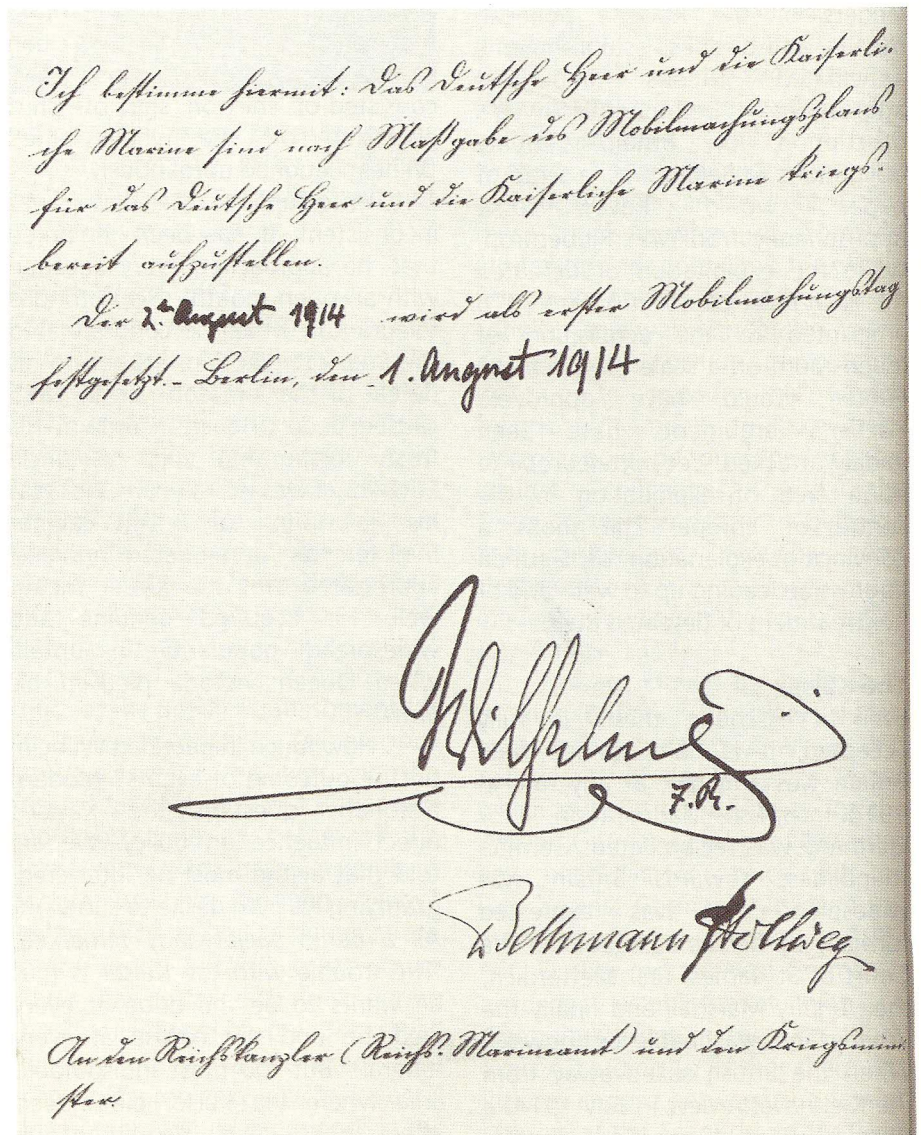 Ich bestimme hiermit: Das Deutsche Heer und die Kaiserli-
che Marine sind nach Maßgabe des Mobilmachungsplans
für das Deutsche Heer und die Kaiserliche Marine kriegs-
bereit aufzustellen.
Der 2te August 1914 wird als erster Mobilmachungstag
festgesetzt. - Berlin, den 1. August 1914
Wilhelm
I.R.
Bethmann Hollweg
An den Reichskanzler (Reichs-Marineamt) und den Kriegsmini-
ster.